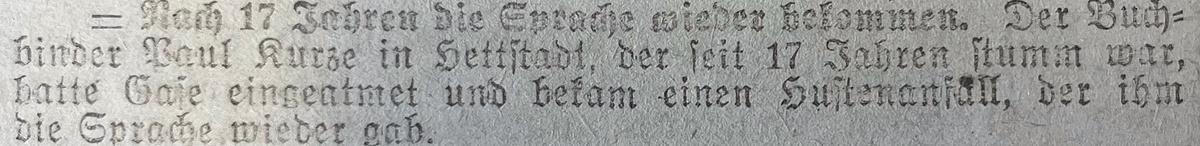 = Nach 17 Jahren die Sprache wieder bekommen. Der Buch-
binder Paul Kurze in Hettstadt, der seit 17 Jahren stumm war,
hatte Gase eingeatmet und bekam einen Hustenanfall, der ihm
die Sprache wieder gab.